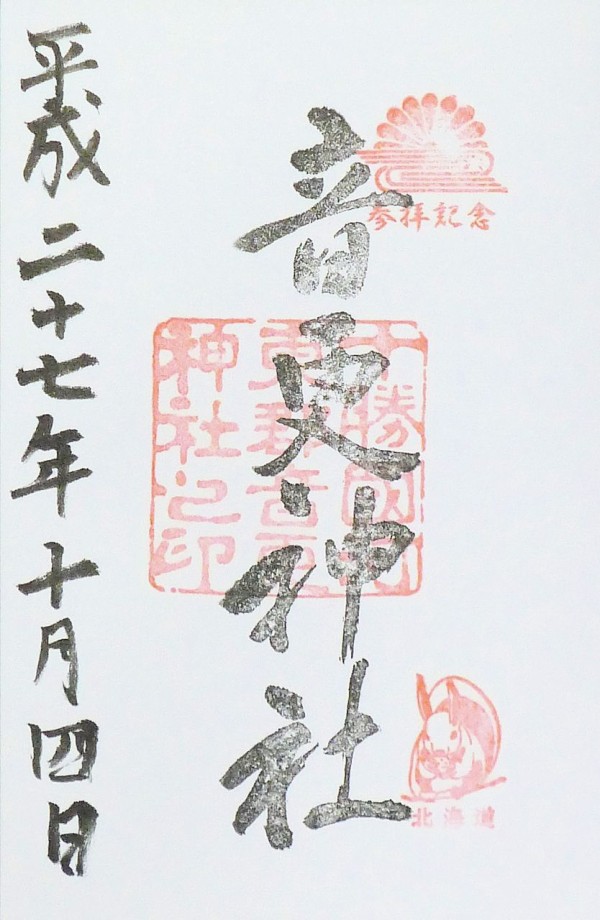 参拝記念
音更神社
十勝国河
東郡音更
神社之印
北海道
平成二十七年十月四日